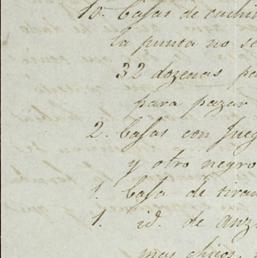 10. Casas de cuchi
la punta no se
32 dozenas pa
para pagar
2. Casas con Jueg
y otro negro
1. Casa de tiran
1. id. de anz
mas chicos